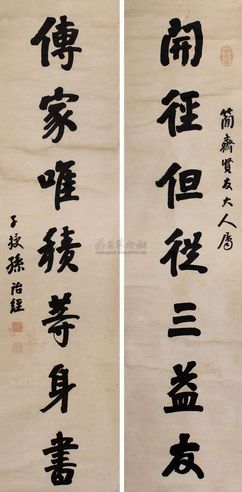 開徑但從三益友
簡齋賢友大人屬
傳家唯積等身書
子授孫詒經